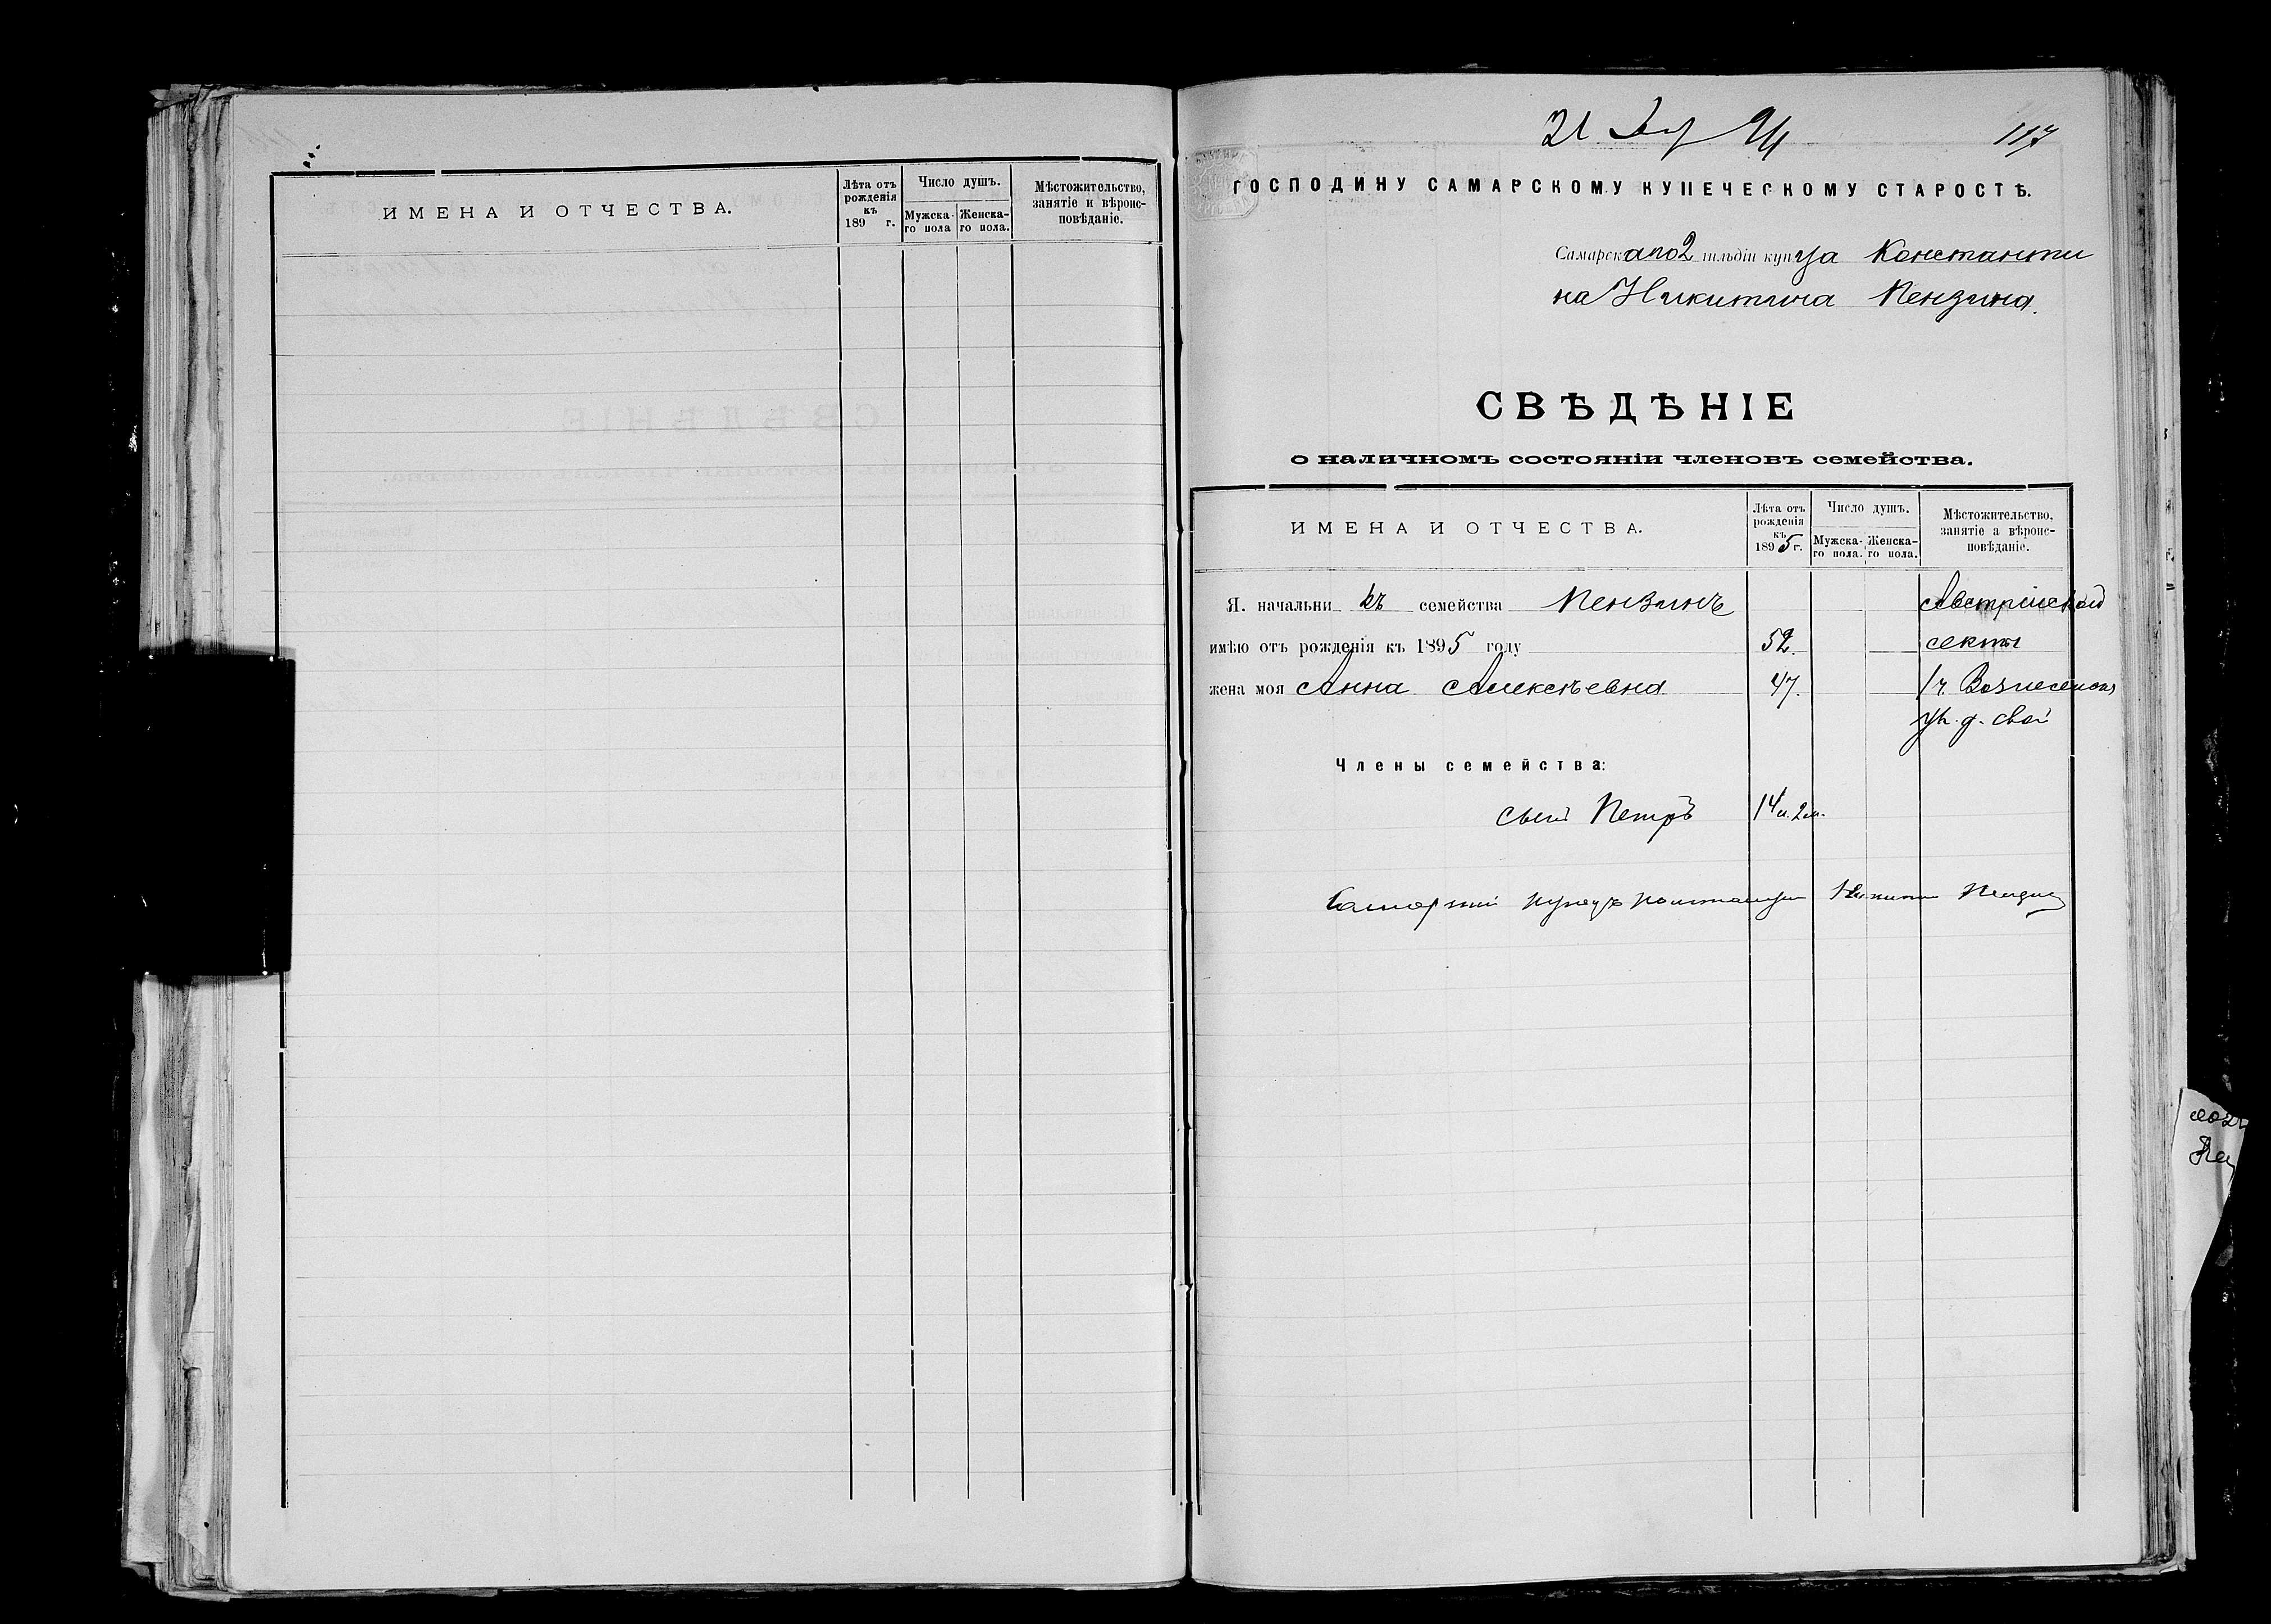 ИМЕНА И ОТЧЕСТВА.
Лѣта отъ рожденія къ 189 г.
Число душъ.
Мужска-го пола
Женска-го пола.
Мѣстожительство, занятіе и вѣроис-повѣданіе.
21 94
117
ГОСПОДИНУ САМАРСКОМУ КУПЕЧЕСКОМУ СТАРОСТѢ.
Самарскаго 2 гильдіи купца Константи
на Никитича Пензина.
СВѢДѢНІЕ
о наличномъ состояніи членовъ семейства.
ИМЕНА И ОТЧЕСТВА.
Лѣта отъ рожденія къ 1895 г.
Число душъ.
Мужска-го пола.
Женска-го пола.
Мѣстожительство, занятіе а вѣроис-повѣданіе.
Я. начальни къ семейства Пензинъ Австрійской
имѣю отъ рожденія къ 1895 году 52. секты
жена моя Анна Алексѣевна 47. 1 ч. Вознесенск
ул. д. свой
Члены семейства:
сынъ Петръ 14 л. 2 м.
Самарскій купецъ Константин Никитин Пензин